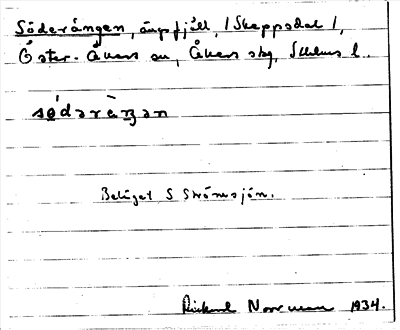 Söderängen, ängsfjäll, /Skeppsdal/,
Öster-Åkers sn, Åkers skg, Sthlms l.
sǿdәrèŋәn
Beläget S Strömsjön.
Rickard Norrman 1934.